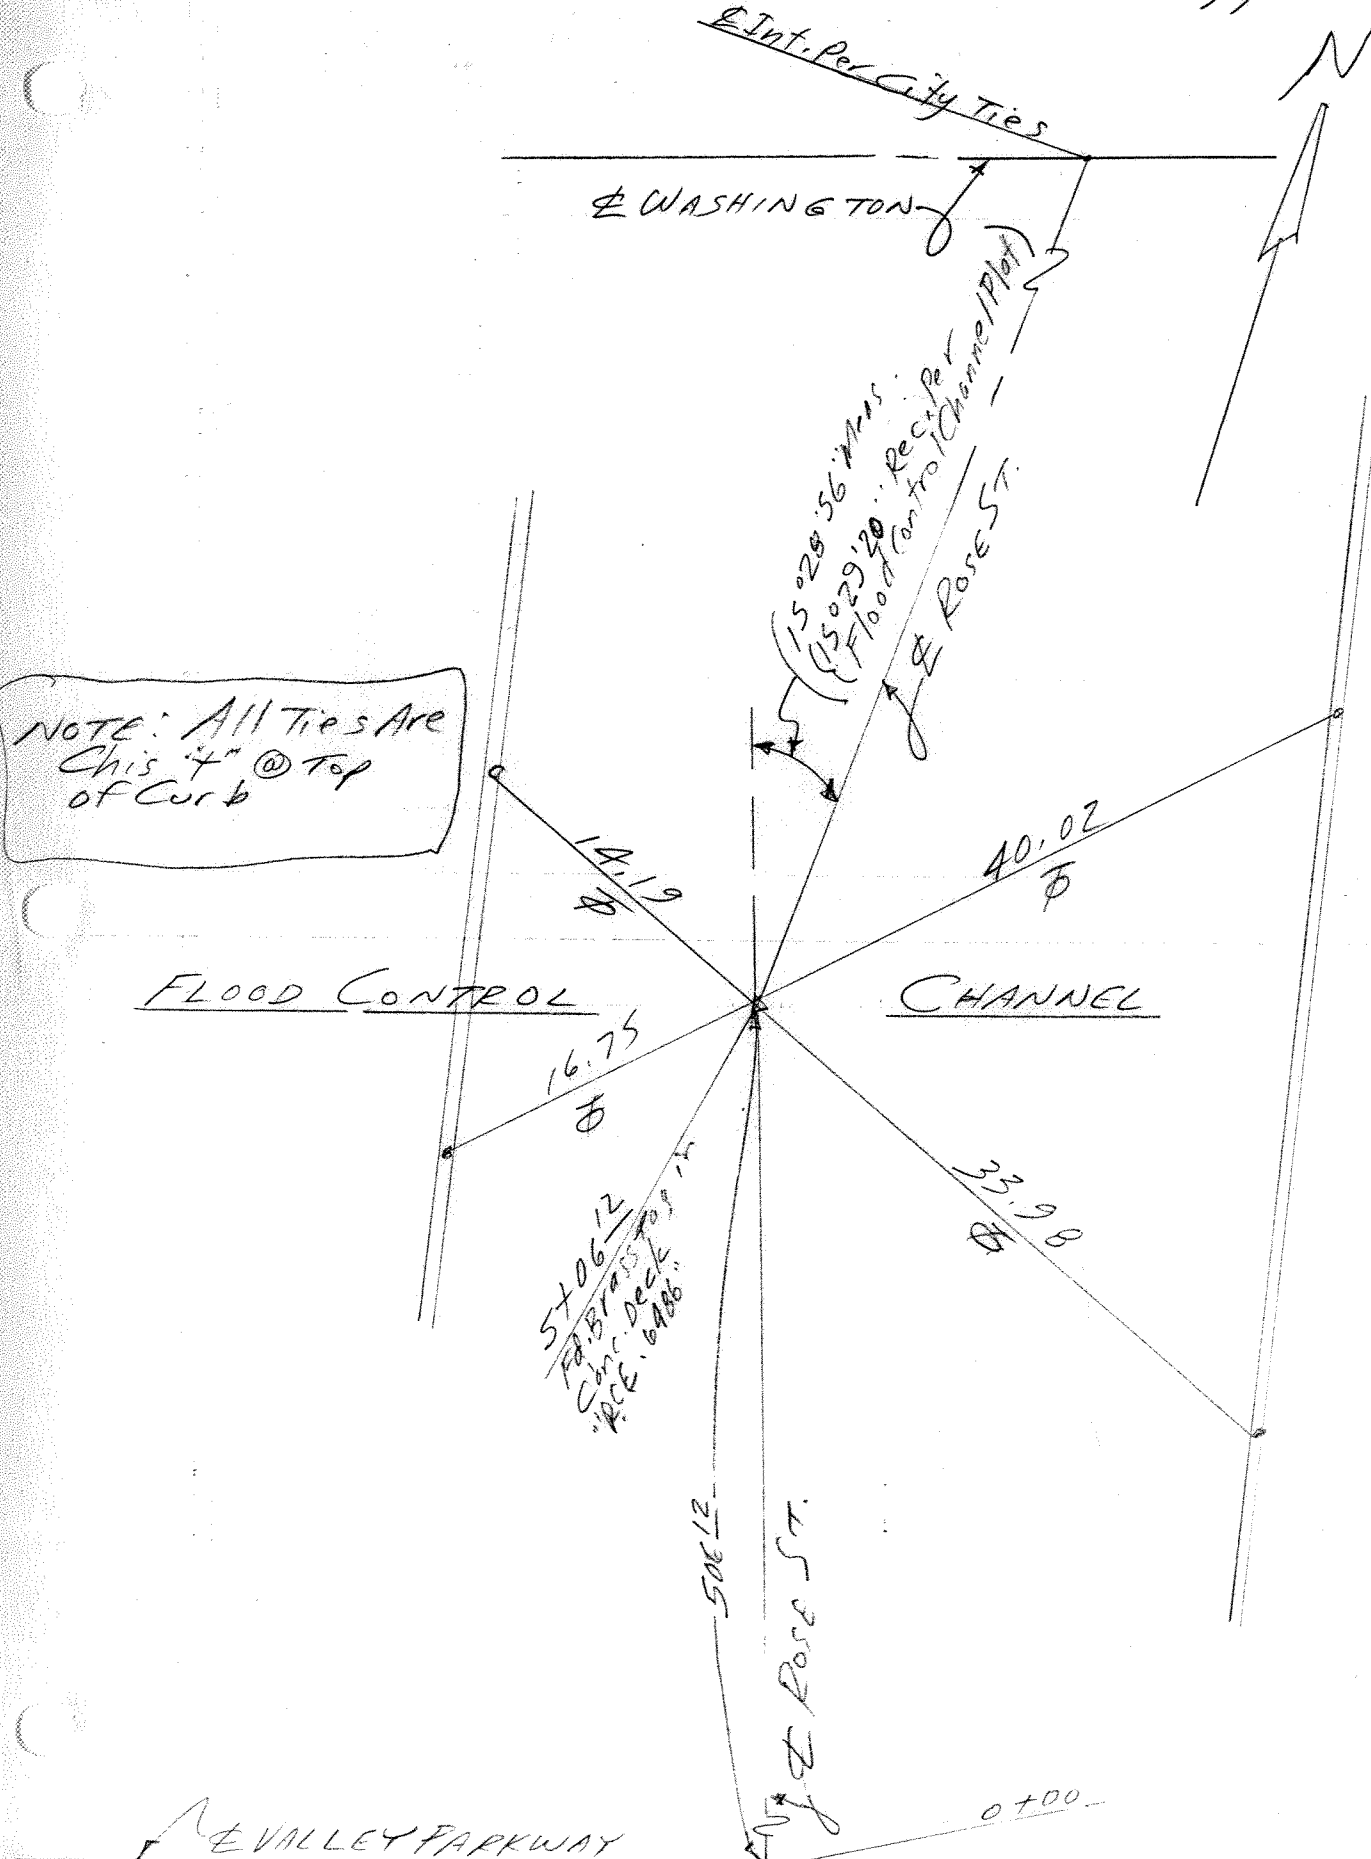 N
℄ Int. Per City Ties
℄ WASHINGTON
15°28'56" Meas.
(15°29'20" Rec. Per
Flood Control Channel Plat)
℄ ROSE ST.
NOTE: All Ties Are
Chis "+" @ Top
of Curb
14.19
40.02
FLOOD CONTROL CHANNEL
16.75
33.98
5+06 12
Fd. Brass in
Conc. Deck
"RCE. 6486"
506 12
℄ ROSE ST.
0+00
℄ VALLEY PARKWAY